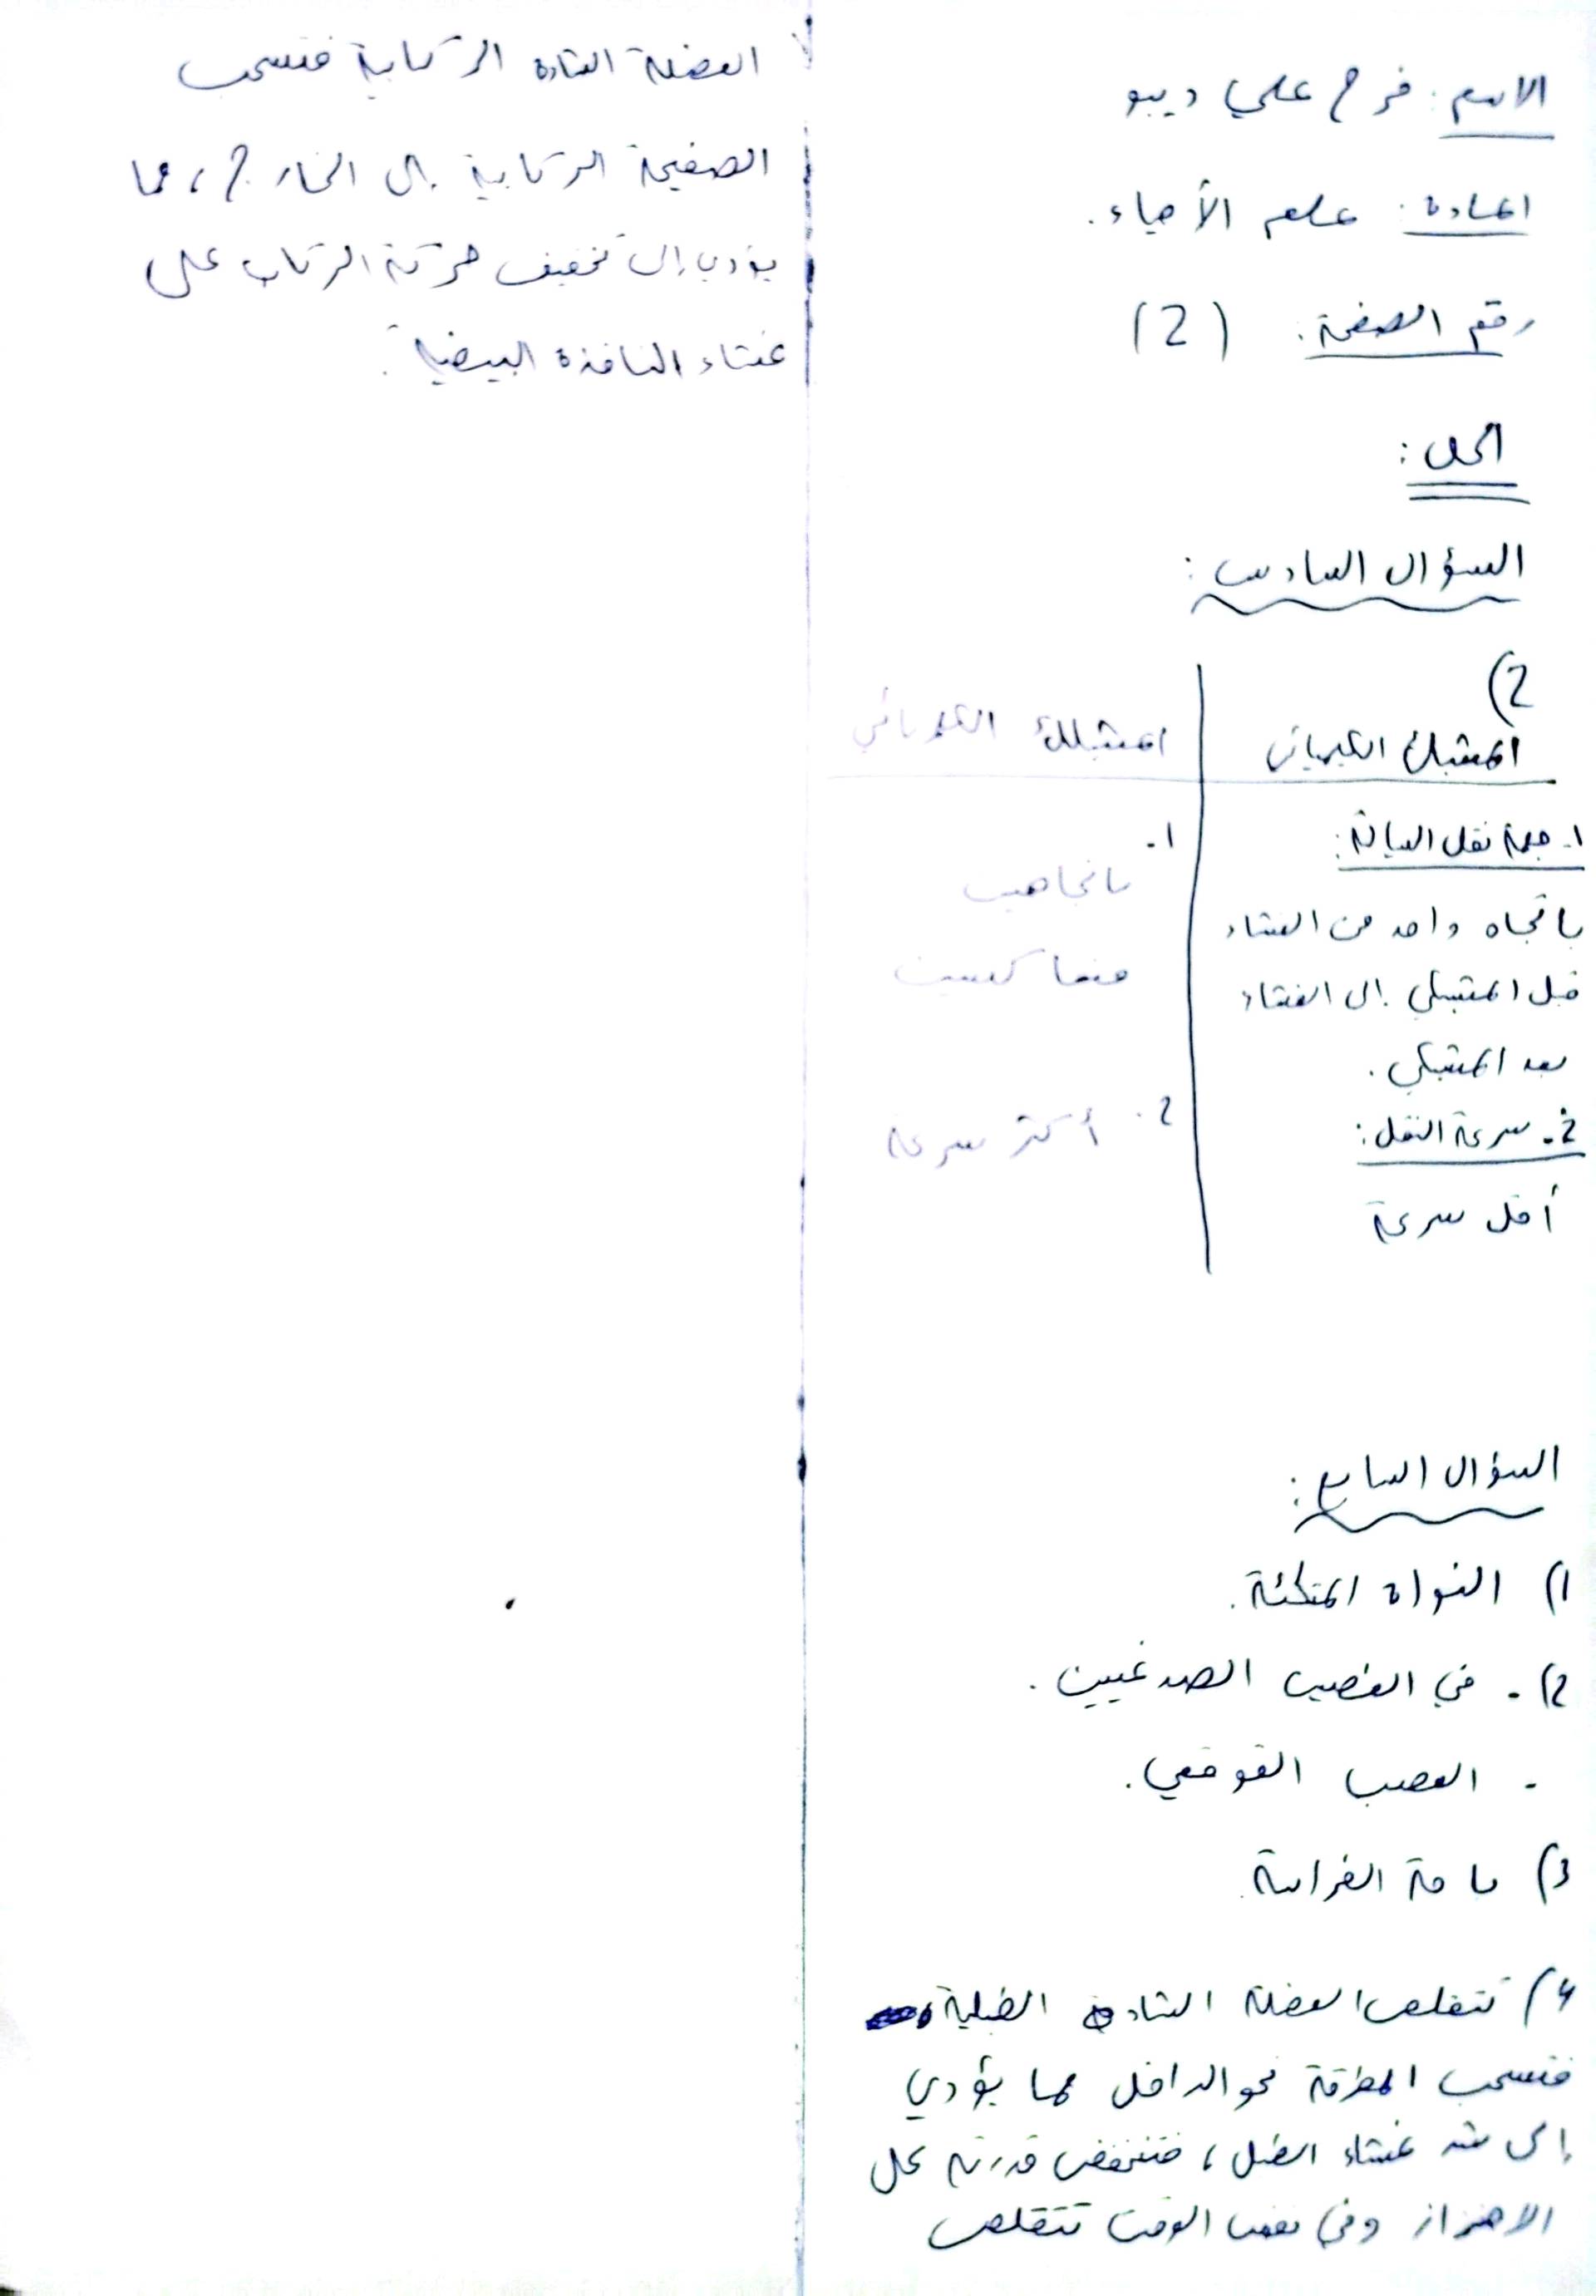 الاسم: فرح علي ديبو
المادة: علم الأحياء.
رقم الصفحة: (2)
الحل:
السؤال السادس:
2)
المشبك الكيميائي
المشبك الكهربائي
1- جهة نقل السيالة:
باتجاه واحد من الغشاء
قبل المشبكي إلى الغشاء
بعد المشبكي.
2- سرعة النقل:
أقل سرعة
1-
باتجاهين
متعاكسين
2- أكثر سرعة
السؤال السابع:
1) النواة المتكئة.
2) - في الفصين الصدغيين.
- العصب القوقعي.
3) باحة الفراسة.
4) تتقلص العضلة الشادة الطبلية
فتسحب المطرقة نحو الداخل مما يؤدي
إلى شد غشاء الطبل، فتنخفض قدرته على
الاهتزاز وفي نفس الوقت تتقلص
العضلة الشادة الركابية فتسحب
الصفيحة الركابية إلى الخارج، مما
يؤدي إلى تخفيف حركة الركاب على
غشاء النافذة البيضية.